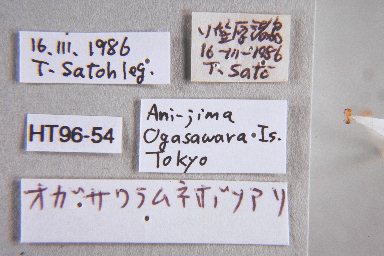 16. III. 1986
T. Satoh leg.
16-III-1986
T. Satō
HT96-54
Ani-jima
Ogasawara Is.
Tokyo
オガサワラムネボソアリ